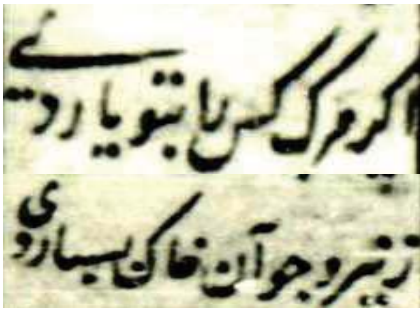 کر مرگ کس را بتو یاردئے
ز پیر و جوآن خاک بسپاردی